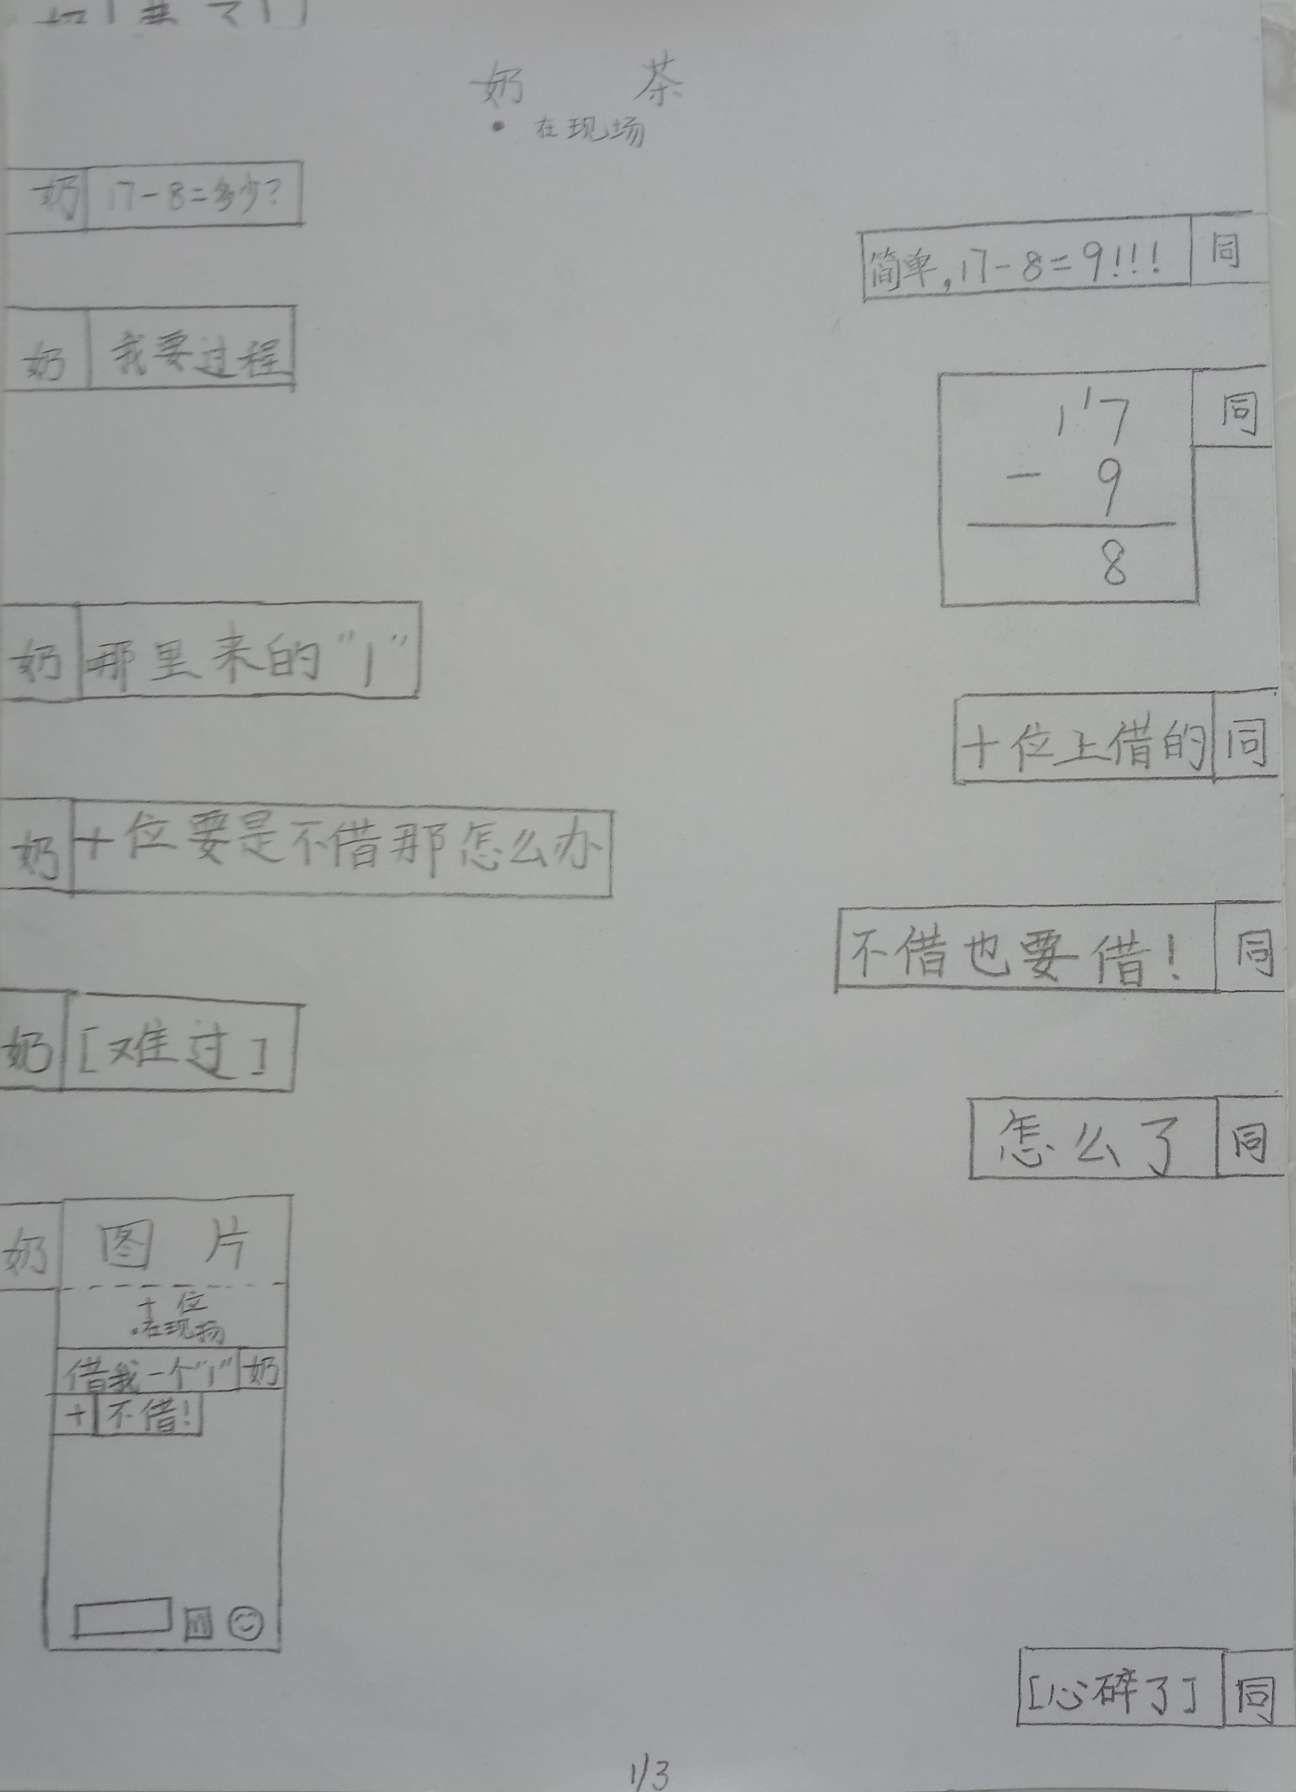 奶 茶
• 在现场
奶 17-8=多少?
简单,17-8=9!!! 同
奶 我要过程
1'7 同
- 9
8
奶 那里来的"1"
十位上借的 同
奶 十位要是不借那怎么办
不借也要借! 同
奶 [难过]
怎么了 同
奶 图 片
十位
•在现场
借我一个"1" 奶
十 不借!
[心碎了] 同
1/3